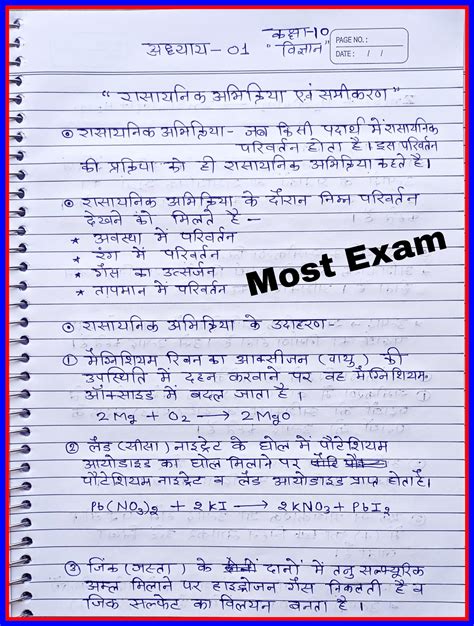 कक्षा-10
अध्याय-01 "विज्ञान"
PAGE NO.:
DATE: / /
"रासायनिक अभिक्रिया एवं समीकरण"
रासायनिक अभिक्रिया- जब किसी पदार्थ में रासायनिक
परिवर्तन होता है। इस परिवर्तन
की प्रक्रिया को ही रासायनिक अभिक्रिया कहते है।
रासायनिक अभिक्रिया के दौरान निम्न परिवर्तन
देखने को मिलते है-
* अवस्था में परिवर्तन
* रंग में परिवर्तन
* गैस का उत्सर्जन
* तापमान में परिवर्तन
Most Exam
रासायनिक अभिक्रिया के उदाहरण-
① मैग्निशियम रिबन का आक्सीजन (वायु) की
उपस्थिति में दहन करवाने पर वह मैग्निशियम
ऑक्साइड में बदल जाता है।
2Mg + O₂ → 2MgO
② लैड (सीसा) नाइट्रेट के घोल में पौटेशियम
आयोडाइड का घोल मिलाने पर
पौटेशियम नाइट्रेट व लैड आयोडाइड प्राप्त होता है।
Pb(NO₃)₂ + 2KI → 2KNO₃ + PbI₂
③ जिंक (जस्ता) के दानों में तनु सल्फ्यूरिक
अम्ल मिलाने पर हाइड्रोजन गैस निकलती है व
जिंक सल्फेट का विलयन बनता है।